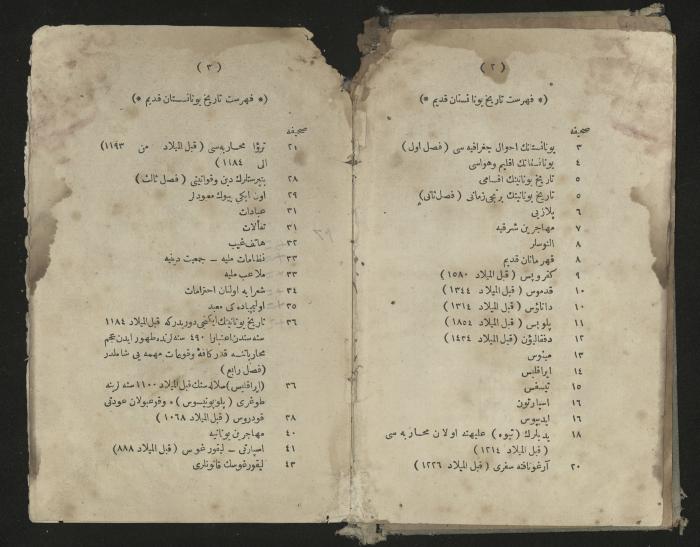 ( ٢ )
(* فهرست تاريخ يونانستان قديم *)
صحيفه
٣ يونانستانك احوال جغرافيه سى ( فصل اول )
٤ يونانستانك اقليم وهواسى
٥ تاريخ يونانينك اقسامى
٥ تاريخ يونانينك برنجى زمانى ( فصل ثانى )
٦ پلازيى
٧ مهاجرين شرقيه
٨ النوسلر
٨ قهرمانان قديم
٩ كفروپس ( قبل الميلاد ١٥٨٠ )
١٠ قدموس ( قبل الميلاد ١٣٤٤ )
١٠ داناؤس ( قبل الميلاد ١٣١٤ )
١١ پلوپس ( قبل الميلاد ١٨٥٤ )
١٢ دفقاليؤن ( قبل الميلاد ١٤٣٤ )
١٣ مينوس
١٤ ايراقليس
١٥ تيسفس
١٦ اسپارتون
١٦ ايديپوس
١٨ يديلرك ( تيوه ) عليهنه اولان محاربه سى
( قبل الميلاد ١٢١٤ )
٢٠ آرغونافته سفرى ( قبل الميلاد ١٢٢٦ )
( ٣ )
(* فهرست تاريخ يونانستان قديم *)
صحيفه
٢١ تروٰا محاربه سى ( قبل الميلاد من ١١٩٣
الى ١١٨٤ )
٢٨ بتپرستلرك دين وقوانينى ( فصل ثالث )
٢٩ اون ايكى بيوك معبودلر
٣١ عبادات
٣١ تفألات
٣٢ هاتف غيب
٣٣ نظامات مليه ـ جمعيت دينيه
٣٣ ملاعب مليه
٣٤ شعرايه اولنان احترامات
٣٥ اوليمپياده كى معبد
٣٦ تاريخ يونانينك ايكنجى دوريدركه قبل الميلاد ١١٨٤
سنه سندن اعتبارا ٤٩٠ سنه لرنده ظهور ايدن عجم
محارباتنه قدر كافهٔ وقوعات مهمه يى شاملدر
( فصل رابع )
٣٦ ( ايراقليس ) سلاله سنك قبل الميلاد ١١٠٠ سنه لرينه
طوغرى ( پلوپونيسوس ) ه وقوعبولان عودتى
٣٨ قودروس ( قبل الميلاد ١٠٦٨ )
٤٠ مهاجرين يونانيه
٤١ اسپارتى ـ ليقورغوس ( قبل الميلاد ٨٨٨ )
٤٣ ليقورغوسك قانونلرى